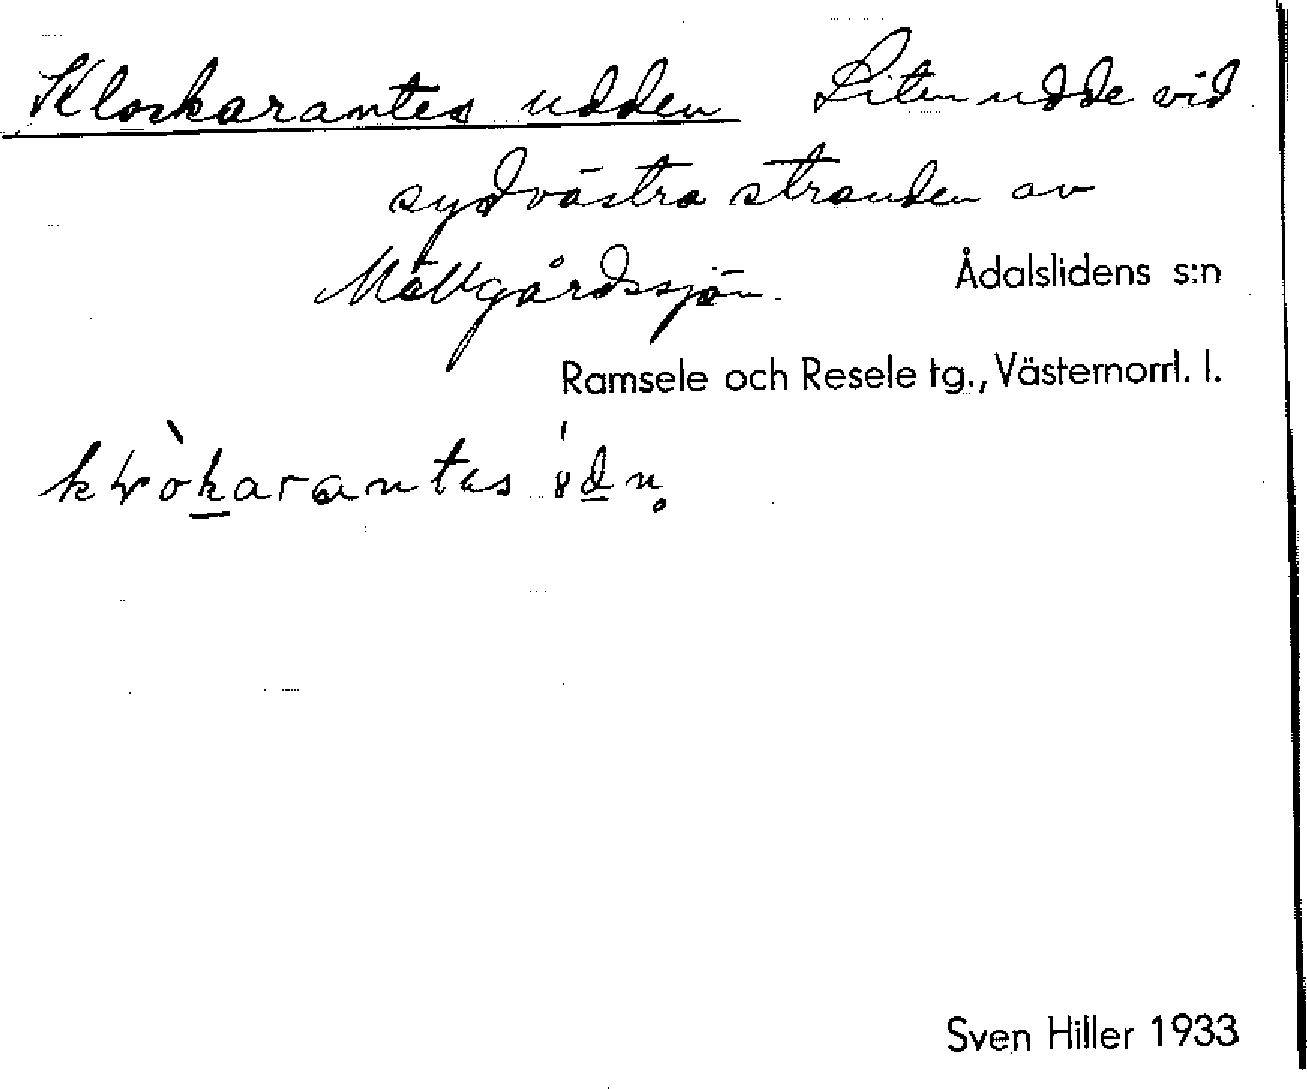 Klockarantes udden Liten udde vid
sydvästra stranden av
Mållgårdssjön.
Ådalslidens s:n
Ramsele och Resele tg., Västernorrl. l.
Sven Hiller 1933